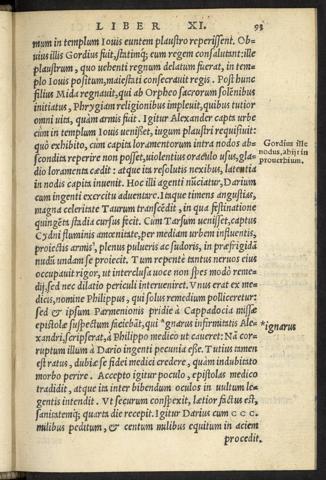 LIBER XI. 93
mum in templum Iouis euntem plaustro reperissent. Ob-
uius illis Gordius fuit, statimq; eum regem consalutant: ille
plaustrum, quo uehenti regnum delatum fuerat, in tem-
plo Iouis positum, maiestati consecrauit regis. Post hunc
filius Mida regnauit, qui ab Orpheo sacrorum solēnibus
initiatus, Phrygiam religionibus impleuit, quibus tutior
omni uita, quàm armis fuit. Igitur Alexander capta urbe
cùm in templum Iouis uenisset, iugum plaustri requisiuit:
quò exhibito, cùm capita loramentorum intra nodos ab-
scondita reperire non posset, uiolentius oraculo usus, gla-
dio loramenta cædit: atque ita resolutis nexibus, latentia
in nodis capita inuenit. Hoc illi agenti nūciatur, Darium
cum ingenti exercitu aduentare. Itaque timens angustias,
magna celeritate Taurum transcēdit, in qua festinatione
quingēta stadia cursu fecit. Cùm Tarsum uenisset, captus
Cydni fluminis amœnitate, per mediam urbem influentis,
proiectis armis, plenus pulueris ac sudoris, in præfrigidā
nudū undam se proiecit. Tum repentè tantus neruos eius
occupauit rigor, ut interclusa uoce non spes modò reme-
dij, sed nec dilatio periculi inueniret. Vnus erat ex me-
dicis, nomine Philippus, qui solus remedium polliceretur:
sed & ipsum Parmenionis pridiè à Cappadocia missæ
epistolæ suspectum faciebāt, qui *gnarus infirmitatis Ale-
xandri, scripserat, à Philippo medico ut caueret: Nā cor-
ruptum illum à Dario ingenti pecunia esse. Tutius tamen
est ratus, dubiæ se fidei medici credere, quàm indubitato
morbo perire. Accepto igitur poculo, epistolas medico
tradidit, atque ita inter bibendum oculos in uultum le-
gentis intendit. Vt securum conspexit, lætior factus est,
sanitatemq; quarta die recepit. Igitur Darius cum CCC.
milibus peditum, & centum milibus equitum in aciem
procedit.
Gordius ille
nodus, abijt in
prouerbium.
*ignarus